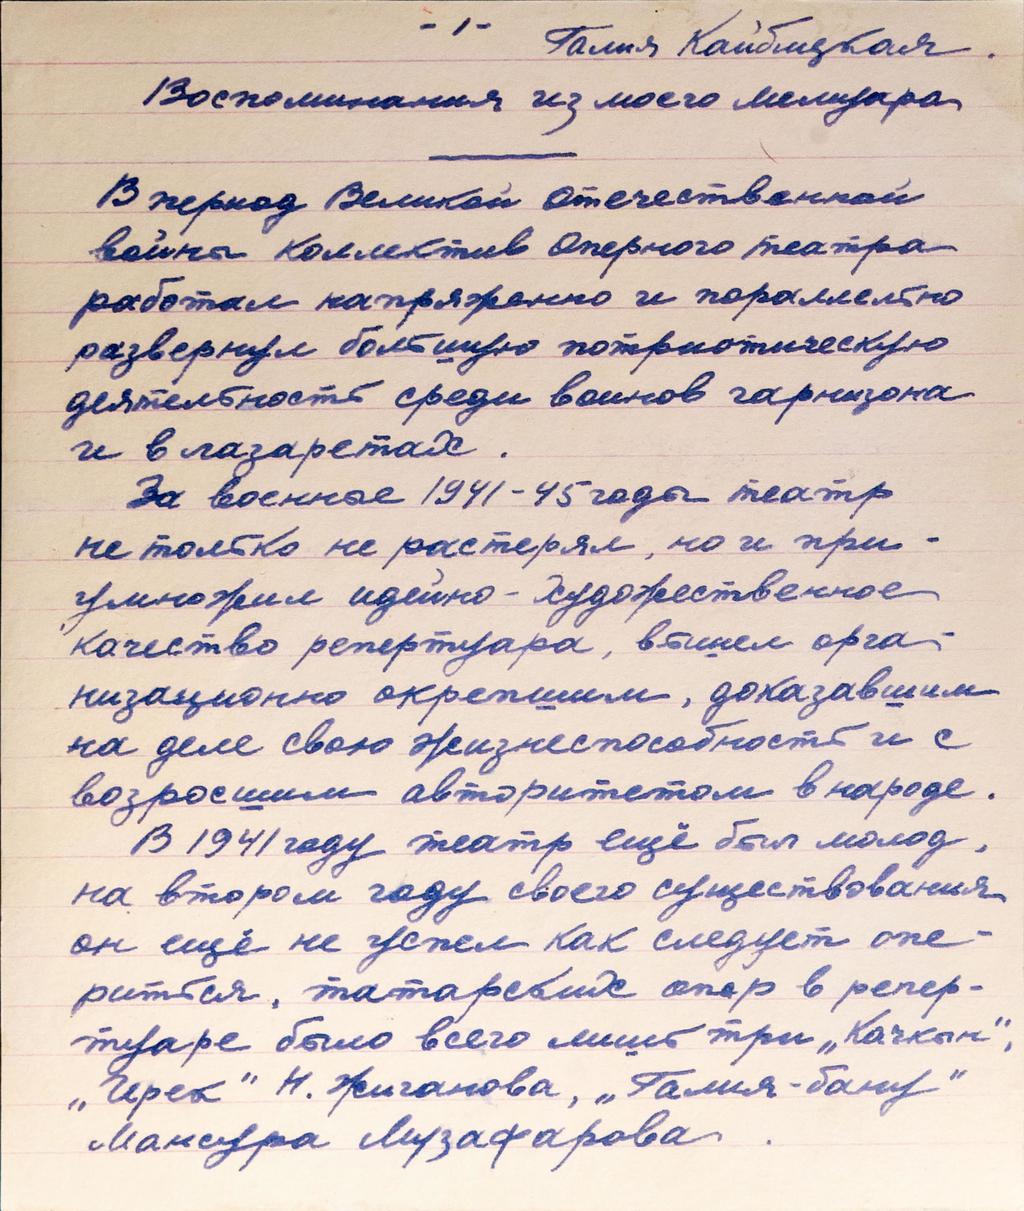 - 1 -
Галия Кайбицкая.
Воспоминания из моего мемуара
В период Великой Отечественной
войны коллектив Оперного театра
работал напряженно и параллельно
развернул большую патриотическую
деятельность среди воинов гарнизона
и в лазаретах.
За военные 1941-45 годы театр
не только не растерял, но и при-
умножил идейно-художественное
качество репертуара, вышел орга-
низационно окрепшим, доказавшим
на деле свою жизнеспособность и с
возросшим авторитетом в народе.
В 1941 году театр ещё был молод,
на втором году своего существования
он ещё не успел как следует опе-
риться, татарских опер в репер-
туаре было всего лишь три „Качкын",
„Ирек" Н. Жиганова, „Галия-бану"
Мансура Музафарова.